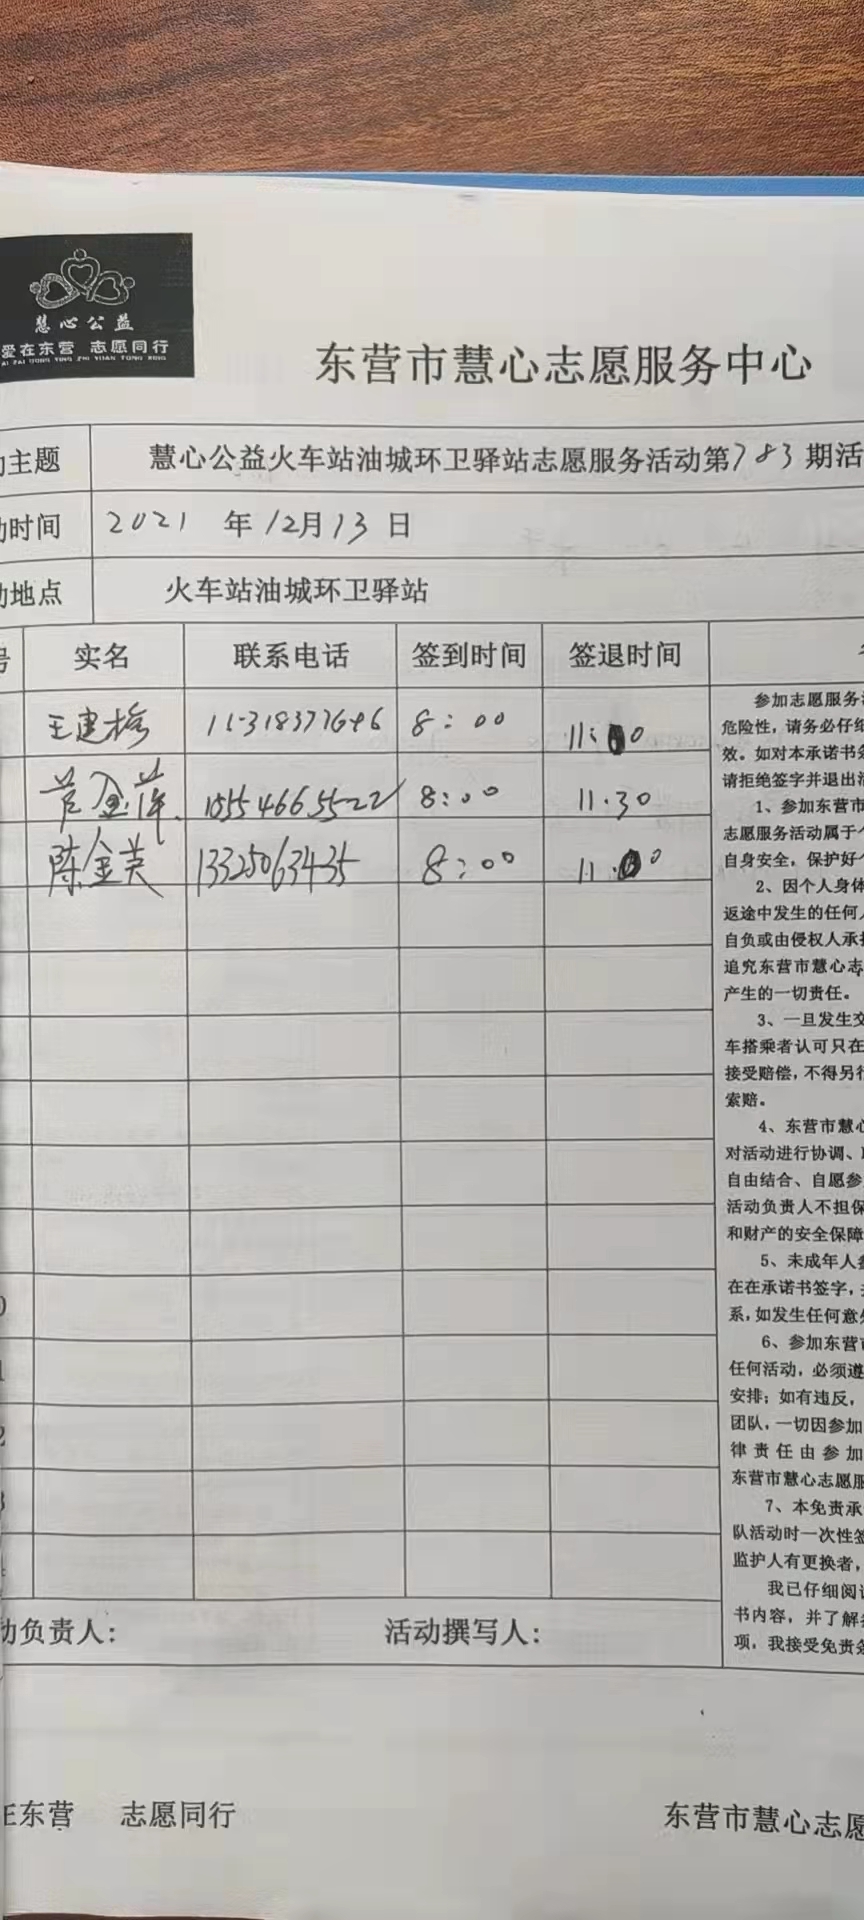 慧心公益
爱在东营 志愿同行
AI ZAI DONG YING ZHI YUAN TONG XING
东营市慧心志愿服务中心
主题 慧心公益火车站油城环卫驿站志愿服务活动第783期活
时间 2021 年 12月13日
地点 火车站油城环卫驿站
号 实名 联系电话 签到时间 签退时间
王建梅 8:00
15554665522 8:00 11.30
陈金美 13325063435 8:00
参加志愿服务
危险性，请务必仔
效。如对本承诺书
请拒绝签字并退出
1、参加东营市
志愿服务活动属于
自身安全，保护好
2、因个人身体
返途中发生的任何
自负或由侵权人承
追究东营市慧心志
产生的一切责任。
3、一旦发生交
车搭乘者认可只在
接受赔偿，不得另
索赔。
4、东营市慧
对活动进行协调、
自由结合、自愿参
活动负责人不担保
和财产的安全保障
5、未成年人
在在承诺书签字，
系，如发生任何意
6、参加东营
任何活动，必须遵
安排；如有违反，
团队，一切因参加
律责任由参加
东营市慧心志愿
7、本免责承
队活动时一次性
监护人有更换者，
我已仔细阅
书内容，并了解
项，我接受免责
负责人： 活动撰写人：
东营 志愿同行
东营市慧心志愿